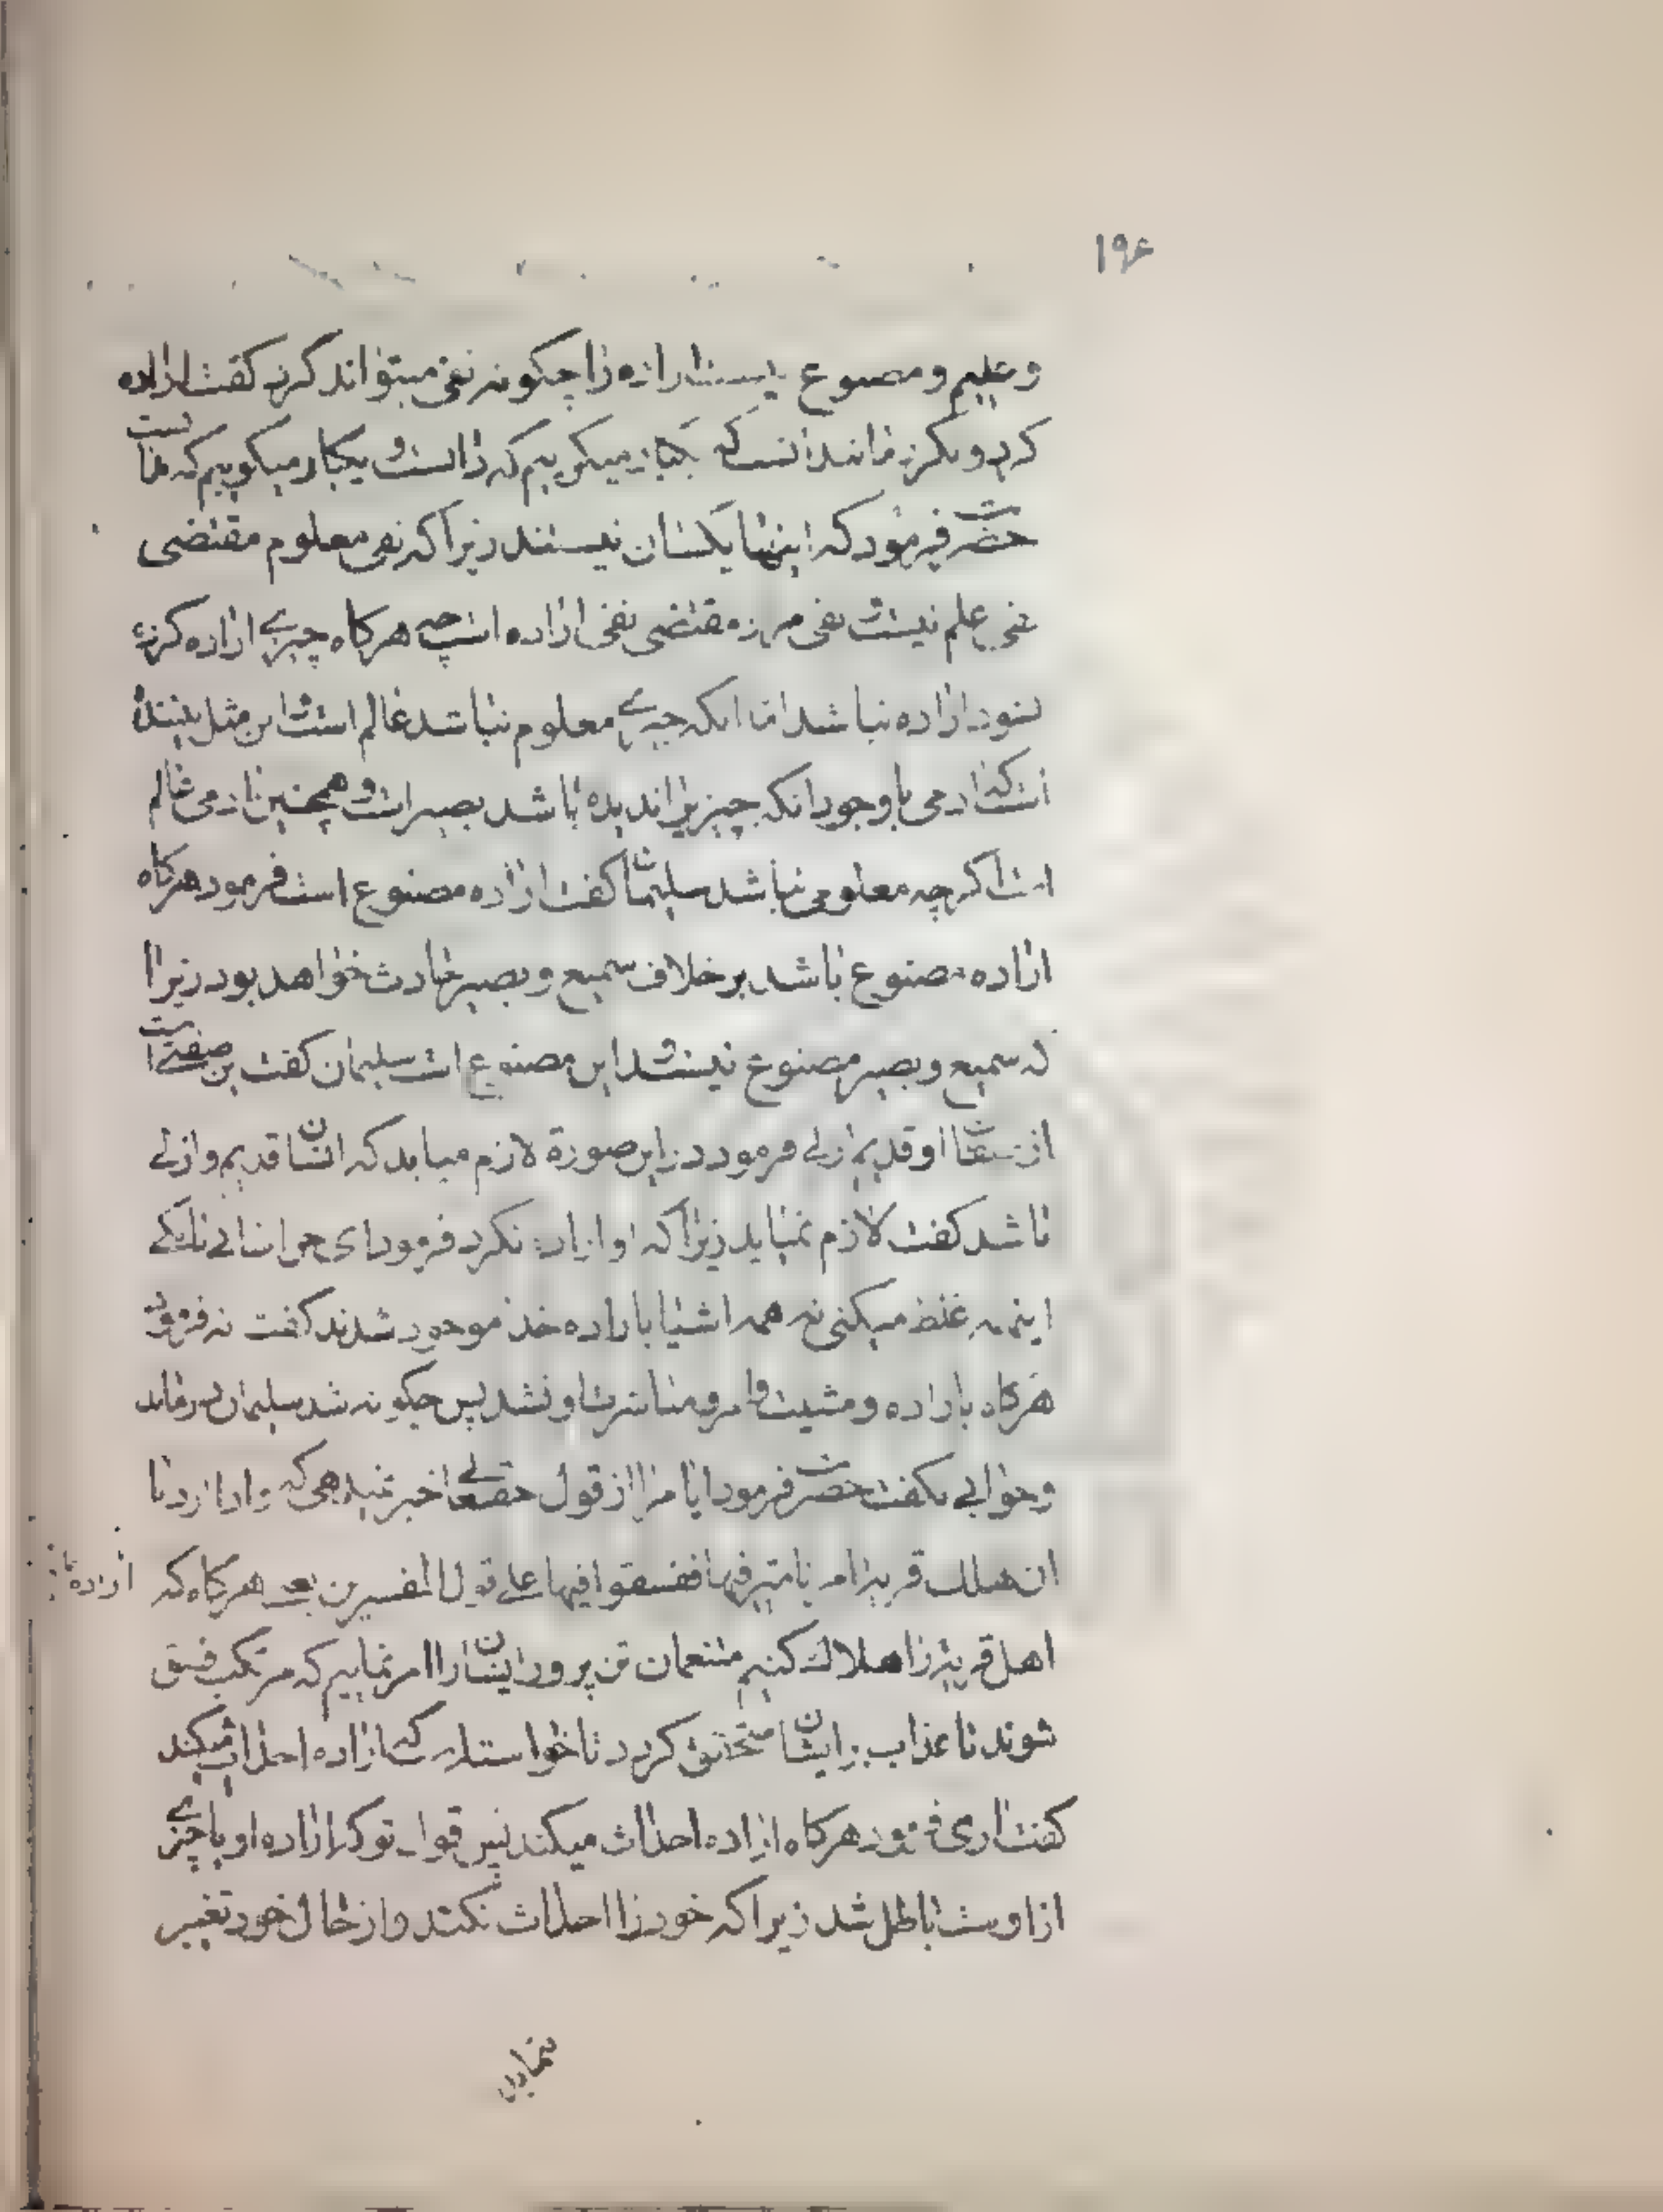 ۱۹۶
و علیم و مصنوع نیست اراده را چگونه نفی میتواند کرد گفت اراده
کرد و نکرد مانند انست که یکبار میگوییم که دانست و یکبار میگوییم که ندانست
حضرت فرمود که اینها یکسان نیستند زیرا که نفی معلوم مقتضی
نفی علم نیست نفی مراد مقتضی نفی اراده است چه هرگاه چیزی اراده کرده
نشود اراده نباشد اما انکه چیزی معلوم نباشد عالم است این مثل بیننده
است که ادمی با وجود انکه چیزیرا ندیده باشد بصیر است و همچنین ادمی عالم
است اگرچه معلومی نباشد سلیمان گفت اراده مصنوع است فرمود هرگاه
اراده مصنوع باشد بر خلاف سمیع و بصیر حادث خواهد بود زیرا
که سمیع و بصیر مصنوع نیستند و این مصنوع است سلیمان گفت این صفتی است
از صفات او قدیم ازلی فرمود در این صورة لازم میاید که انسان قدیم و ازلی
باشد گفت لازم نمیاید زیرا که او اراده نکرد فرمود ای خراسانی
اینهمه غلط میکنی نه همه اشیا باراده خدا موجود شدند گفت نه فرمود
هرگاه باراده و مشیت و امر و مباشرت او نشد پس چگونه شد سلیمان درماند
و جوابی نگفت حضرت فرمود ایا مرا از قول حقتعالی خبر نمیدهی که و اذا اردنا
ان نهلك قریة امرنا مترفیها ففسقوا فیها علی قول المفسرین یعنی هرگاه که اراده
اهل قریه را هلاك کنیم متنعمان تن پرور ایشان را امر نماییم که مرتکب فسق
شوند تا عذاب بر ایشان متحقق گردد تا خواسته است که اراده احداث میکند
گفت اری فرمود هرگاه اراده احداث میکند پس قول تو که اراده او یا چیزی
از اوست باطل شد زیرا که خود را احداث نکند و از حال خود تغییر